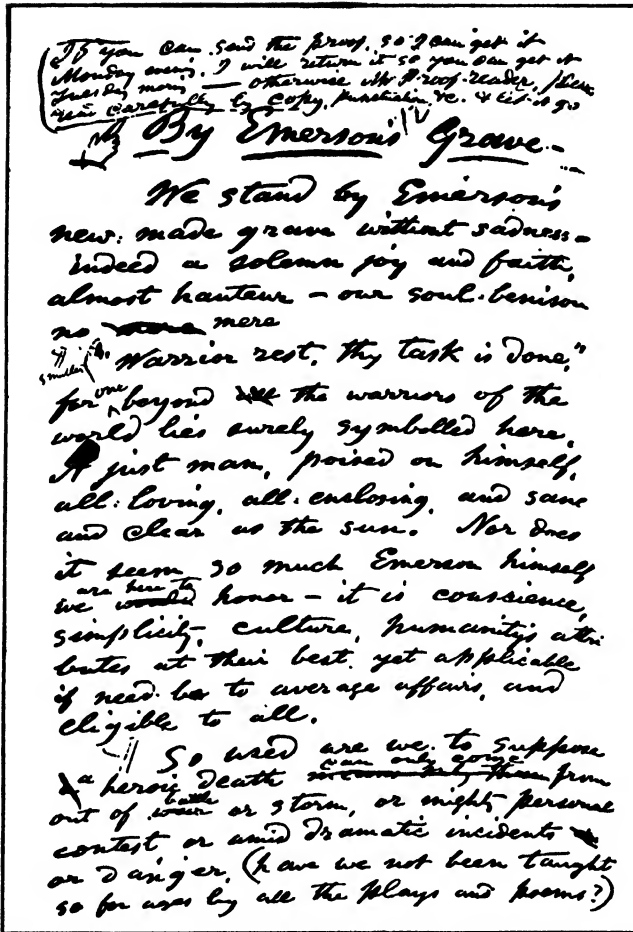 If you can send the proof, so I can get it
Monday even'g, I will return it so you can get it
Tuesday morn — otherwise ask Proof-reader, please
read carefully by copy, punctuation, &c. & let it go
By Emerson's Grave.—
We stand by Emerson's
new-made grave without sadness—
indeed a solemn joy and faith,
almost hauteur — our soul-benison
no more mere
"Warrior rest, thy task is done,"
for one beyond the warriors of the
world lies surely symboll'd here.
A just man, poised on himself,
all-loving, all-enclosing, and sane
and clear as the sun. Nor does
it seem so much Emerson himself
we are here to honor — it is conscience,
simplicity, culture, humanity's attri
butes at their best, yet applicable
if need be to average affairs, and
eligible to all.
So used are we to suppose
a heroic death can only come from
out of battle or storm, or mighty personal
contest or amid dramatic incidents
or danger, (have we not been taught
so for ages by all the plays and poems?)